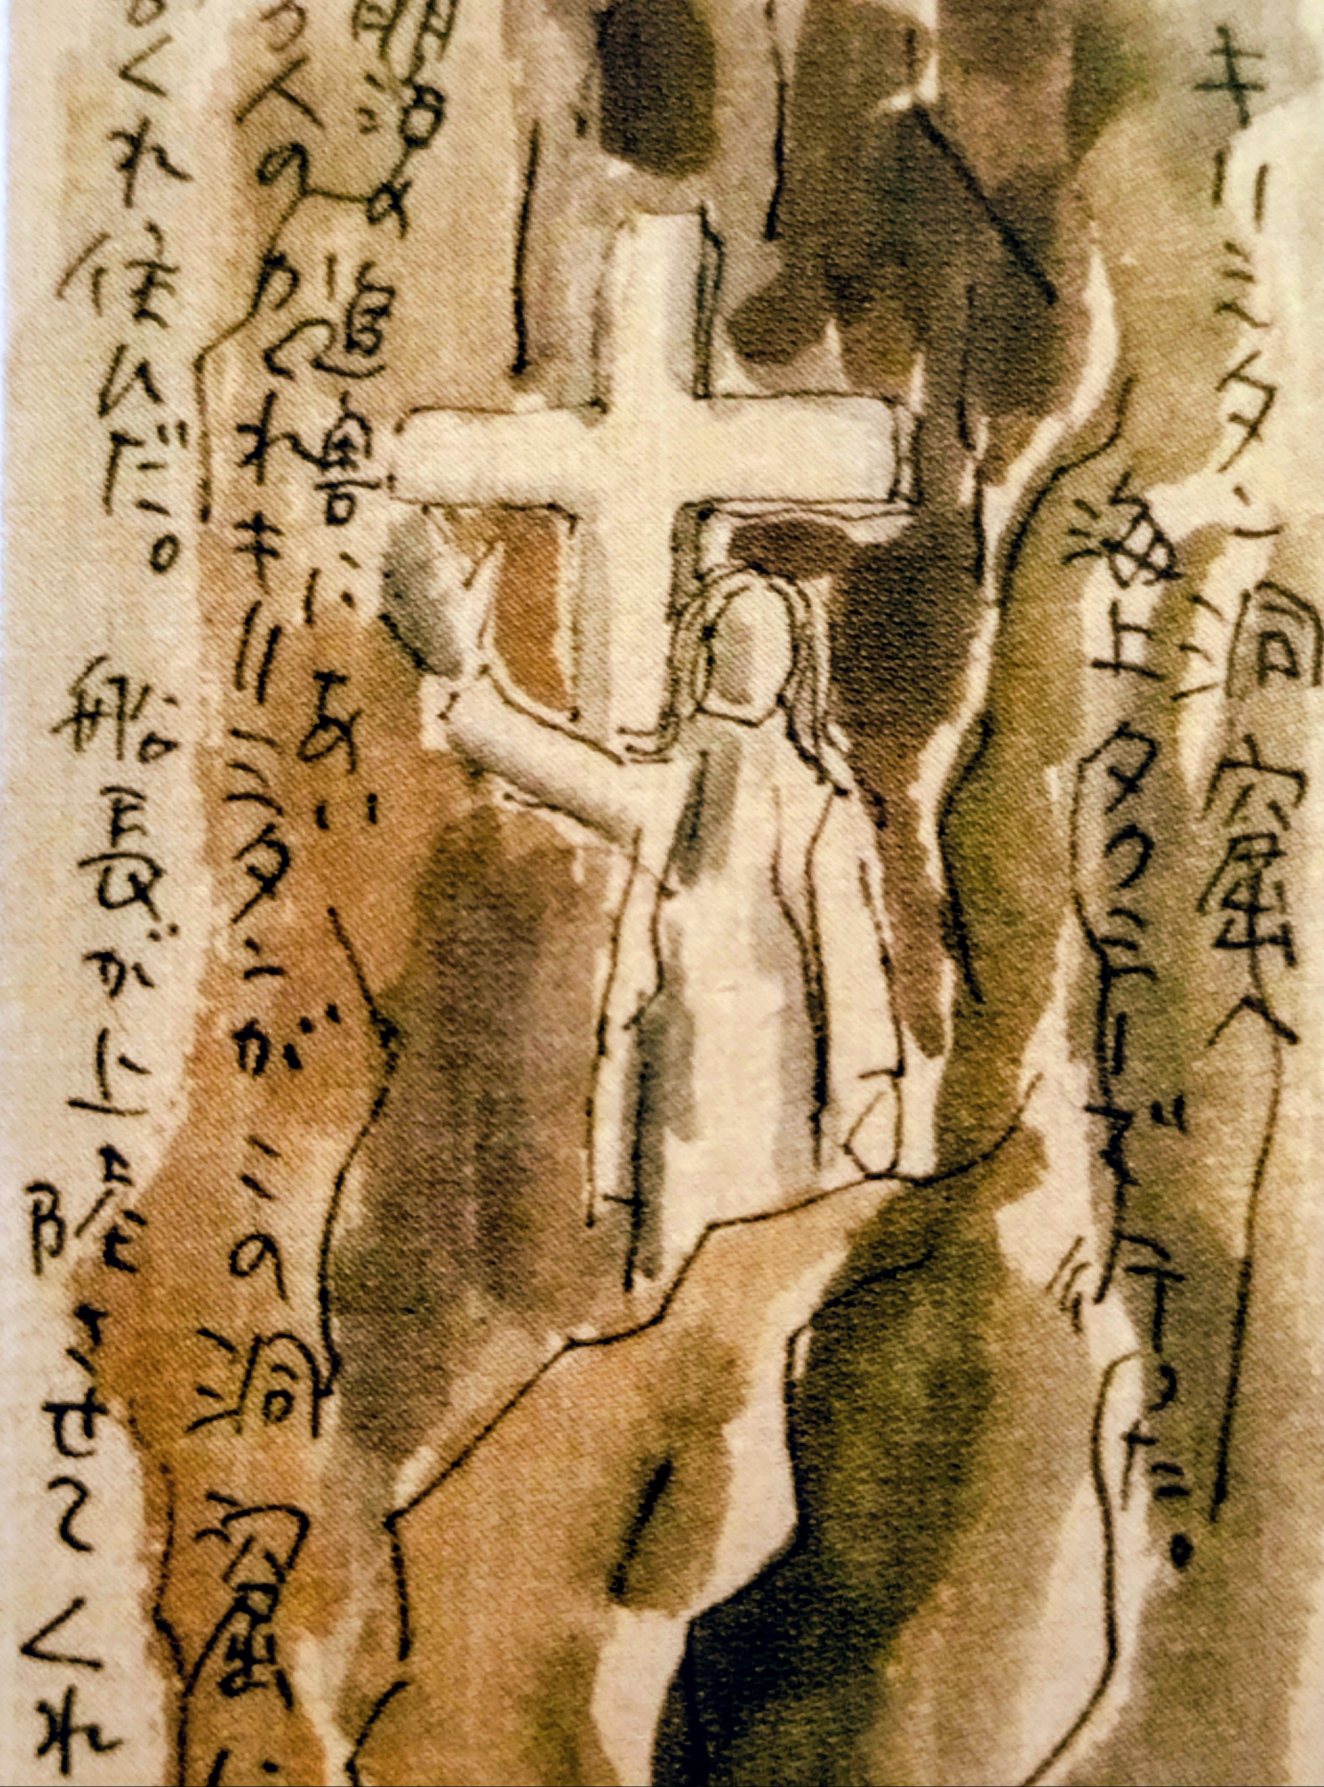 キリシタン洞窟へ
海上タクシーで行った。
明治の迫害にあい
3人のかくれキリシタンがこの洞窟に
くれ住んだ。船長が上陸させてくれ